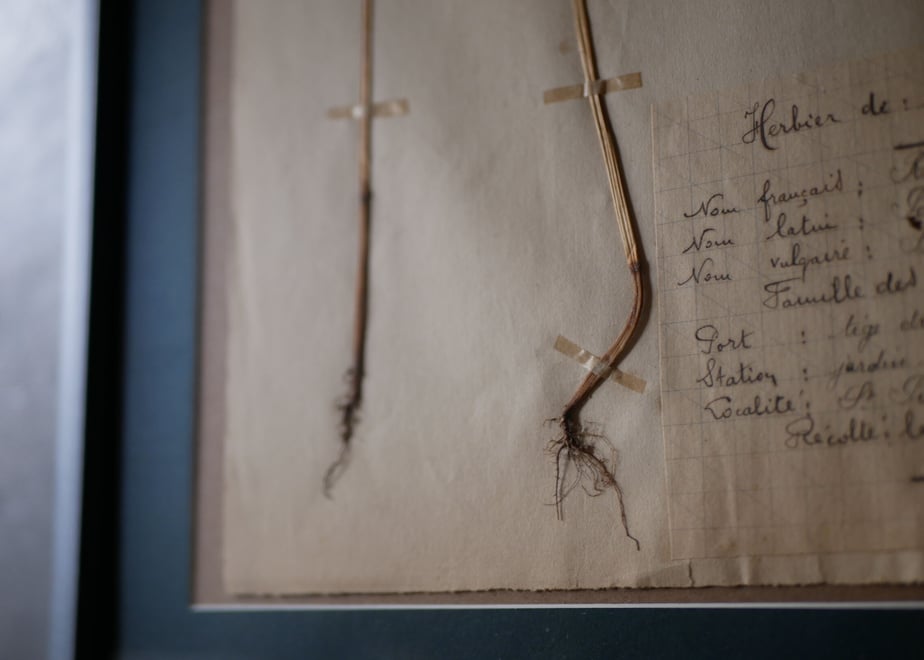 Herbier de :
Nom français :
Nom latin :
Nom vulgaire :
Famille des
Port : tige
Station : jardin
Localité : St
Récolte : le